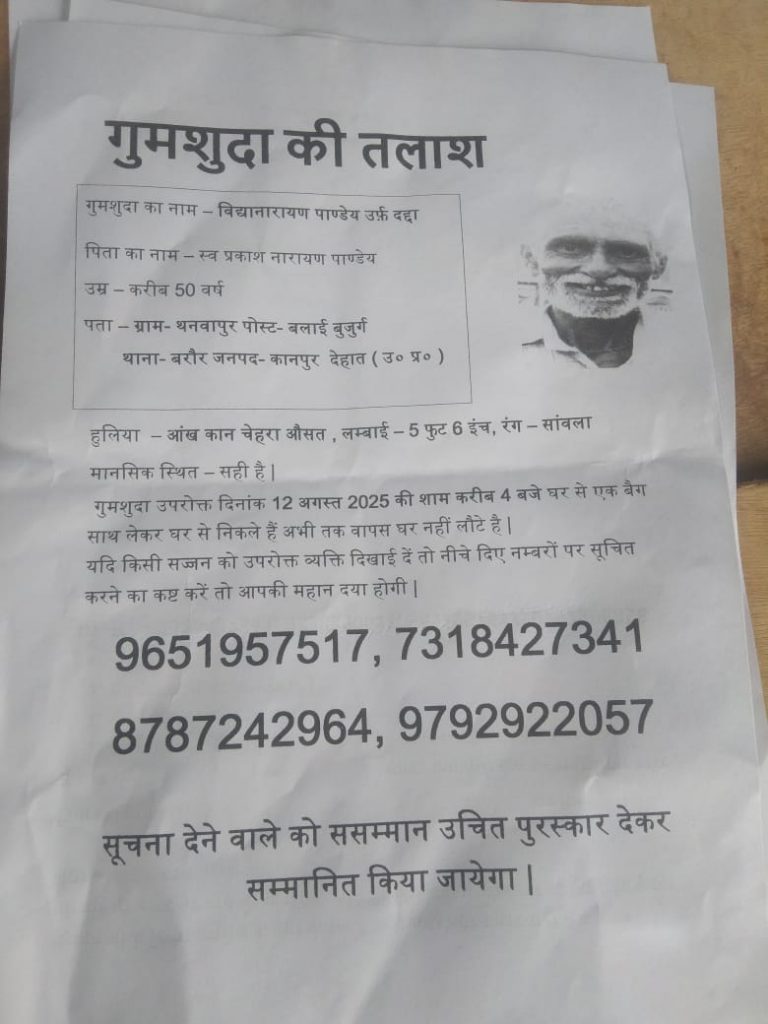 गुमशुदा की तलाश
गुमशुदा का नाम – विद्यानारायण पाण्डेय उर्फ़ दद्दा
पिता का नाम – स्व प्रकाश नारायण पाण्डेय
उम्र – करीब 50 वर्ष
पता – ग्राम- थनवापुर पोस्ट- बलाई बुजुर्ग
थाना- बरौर जनपद- कानपुर देहात ( उ० प्र० )
हुलिया – आंख कान चेहरा औसत , लम्बाई – 5 फुट 6 इंच, रंग – सांवला
मानसिक स्थित – सही है |
गुमशुदा उपरोक्त दिनांक 12 अगस्त 2025 की शाम करीब 4 बजे घर से एक बैग
साथ लेकर घर से निकले हैं अभी तक वापस घर नहीं लौटे है |
यदि किसी सज्जन को उपरोक्त व्यक्ति दिखाई दें तो नीचे दिए नम्बरों पर सूचित
करने का कष्ट करें तो आपकी महान दया होगी |
9651957517, 7318427341
8787242964, 9792922057
सूचना देने वाले को ससम्मान उचित पुरस्कार देकर
सम्मानित किया जायेगा |